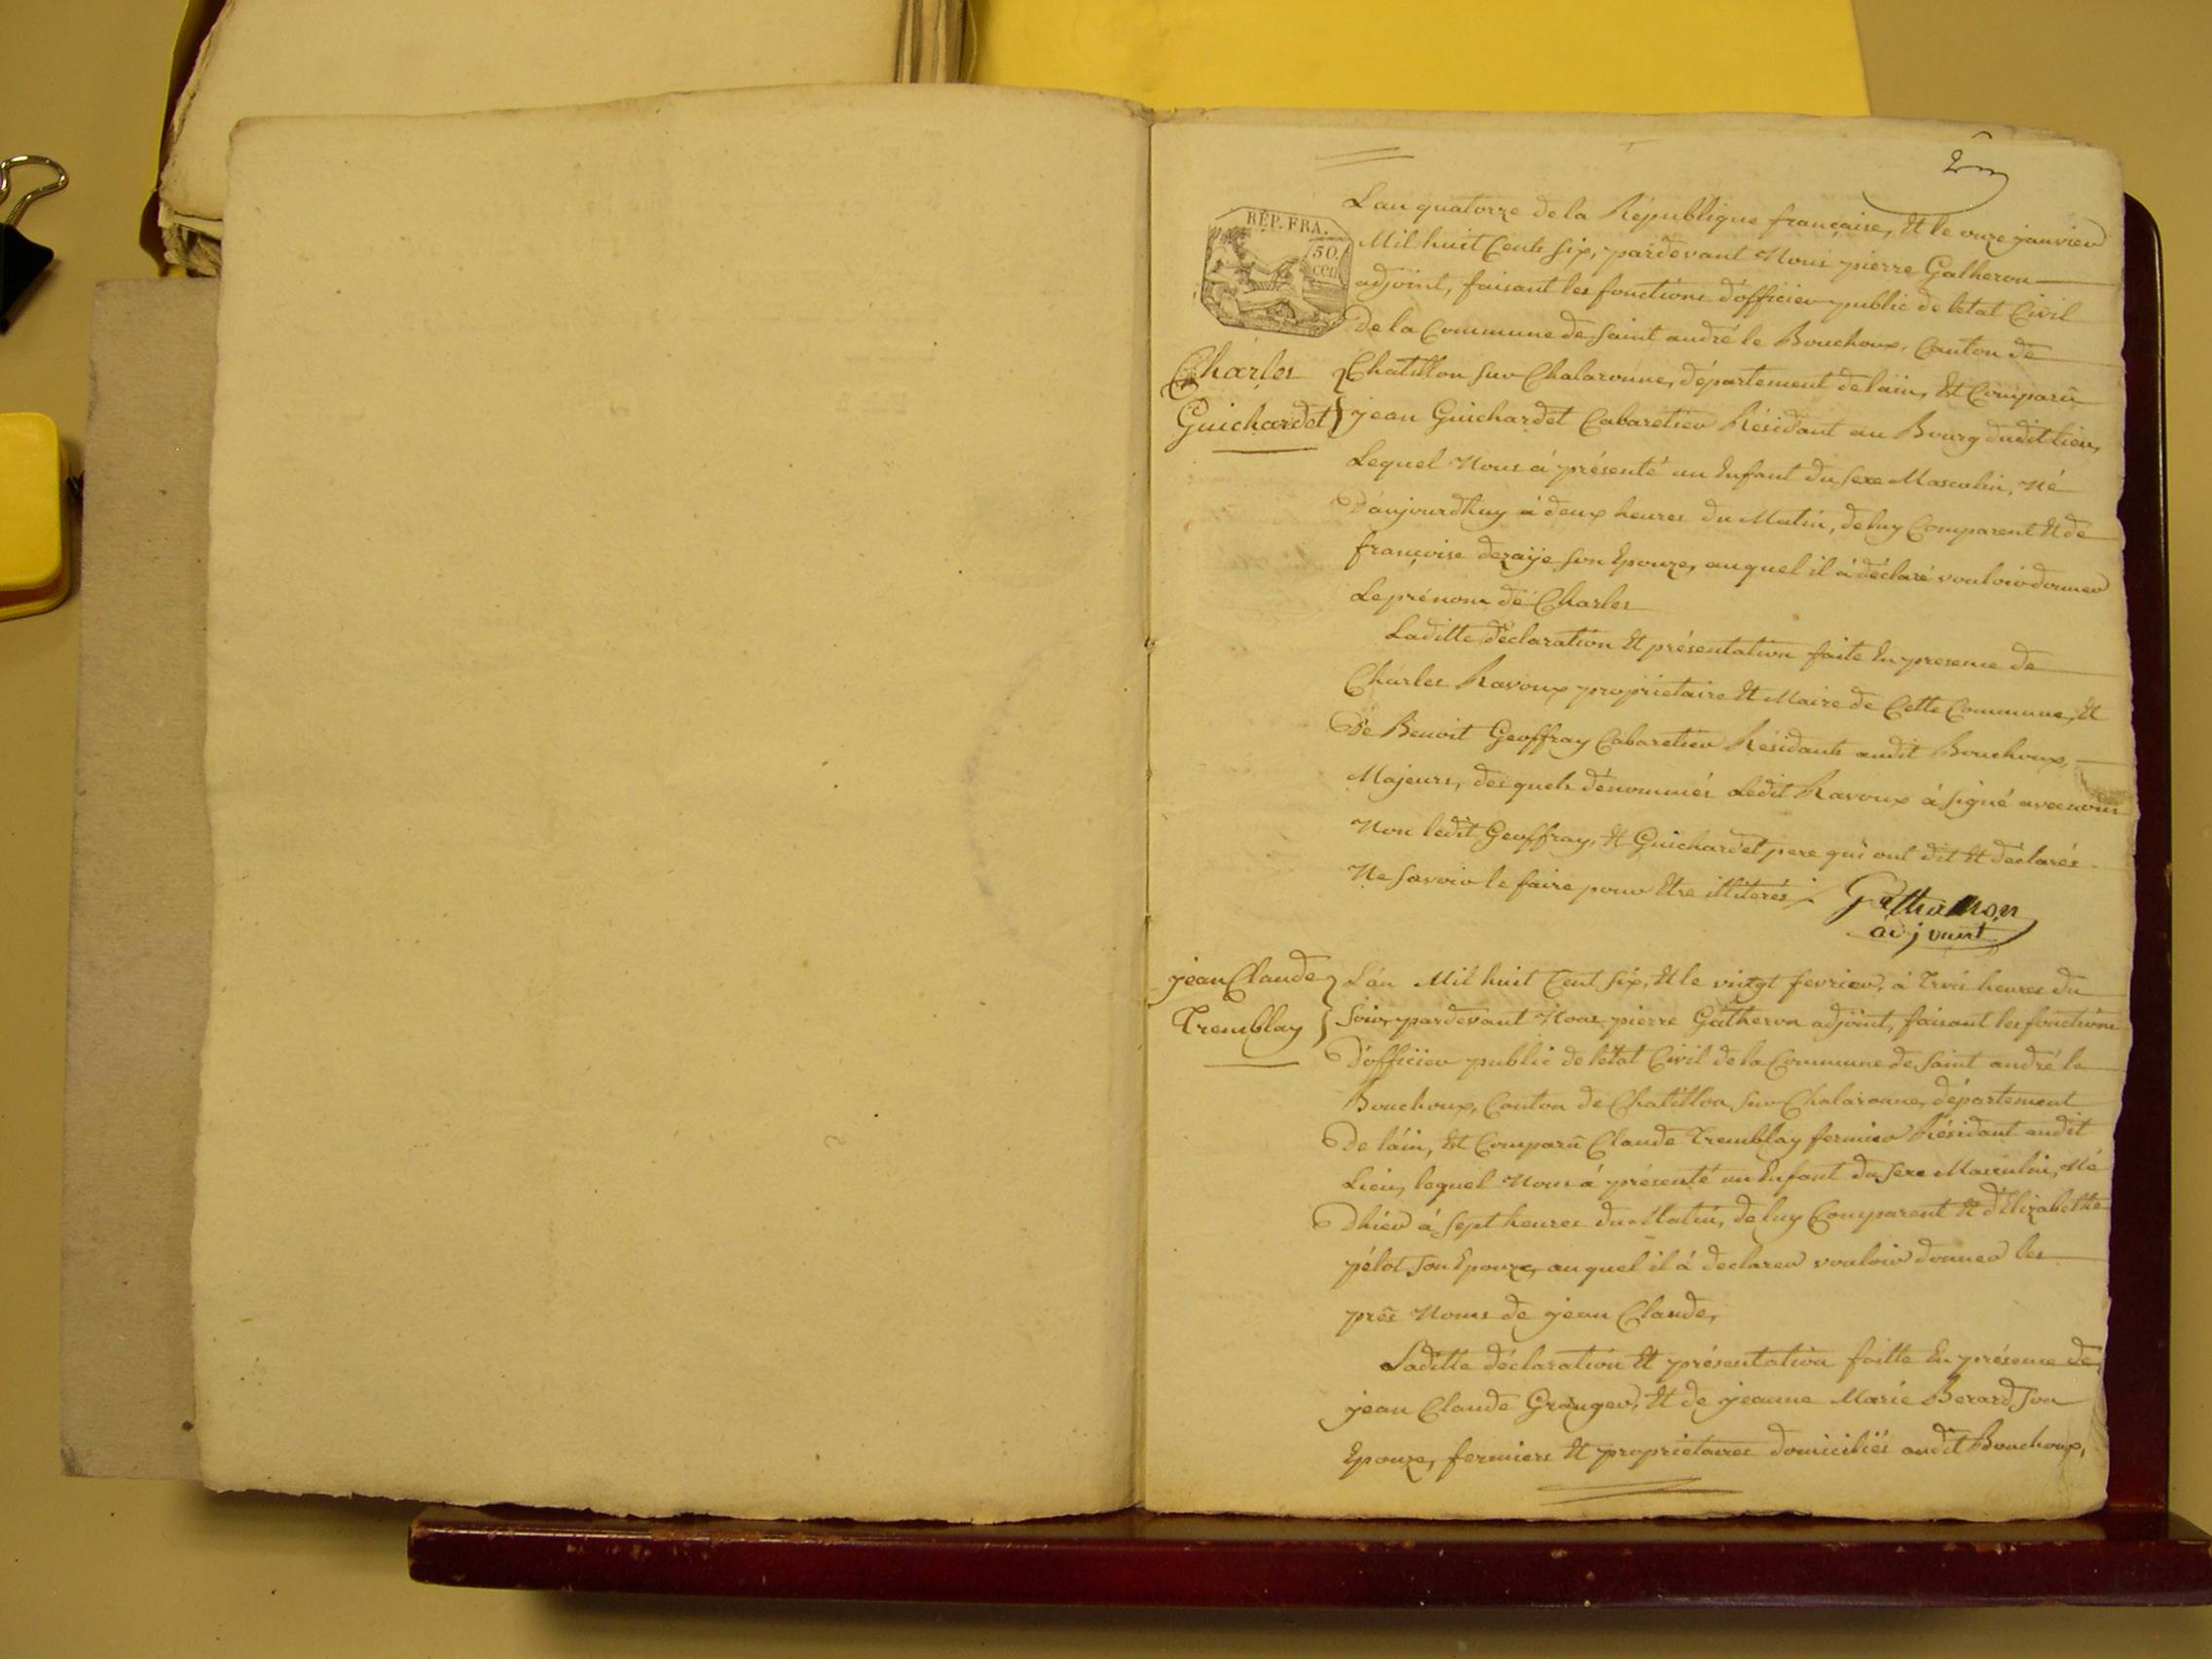 2m
Lan quatorze de la République française, Et le onze janvier
RÉP. FRA.
50.
cen
Mil huit Cents six, pardevant Nous pierre Gatheron
adjoint, faisant les fonctions d'officier public de létat Civil
De la Commune de saint andré le Bouchoux, Canton de
Charles
Chatillon sur Chalaronne, département de lain, Et Comparû
Guichardet
jean Guichardet Cabaretier Résidant au Bourg dudit lieu,
Lequel Nous á présenté un Enfant du sexe Masculin, Né
D'aujourdhuy á deux heures du Matin, de luy Comparent Et de
françoise dezaije son Epouze, auquel il á déclaré vouloir donner
Le prénom de Charles
Laditte déclaration Et présentation faite En presence de
Charles Ravoux proprietaire Et Maire de Cette Commune, Et
De Benoit Geoffray Cabaretier Résidants audit Bouchoux,
Majeurs, desquels dénommés Ledit Ravoux á signé avec nous
Non ledit Geoffray, Et Guichardet pere qui ont dit Et déclarés
Ne savoir le faire pour Etre illiterés
Gatheron
adjoint
jean Claude
L'an Mil huit Cent six, Et le vingt fevrier, á Trois heures du
Tremblay
soir, pardevant Nous pierre Gatheron adjoint, faisant les fonctions
D'officier public de létat Civil de la Commune de saint andré le
Bouchoux, Canton de Chatillon sur Chalaronne, département
De láin, Et Comparû Claude Tremblay fermier Résidant audit
Lieu, lequel Nous á présenté un Enfant du sexe Masculin, Né
Dhier á sept heures du Matin, de luy Comparent Et d'Elizabethe
pélot son Epouze, auquel il á declarer vouloir donner les
prés Noms de jean Claude,
Laditte déclaration Et présentation faitte En présence de
jean Claude Granger, Et de jeanne Marie Berard son
Epouze, fermiers Et proprietaires domiciliés audit Bouchoux,